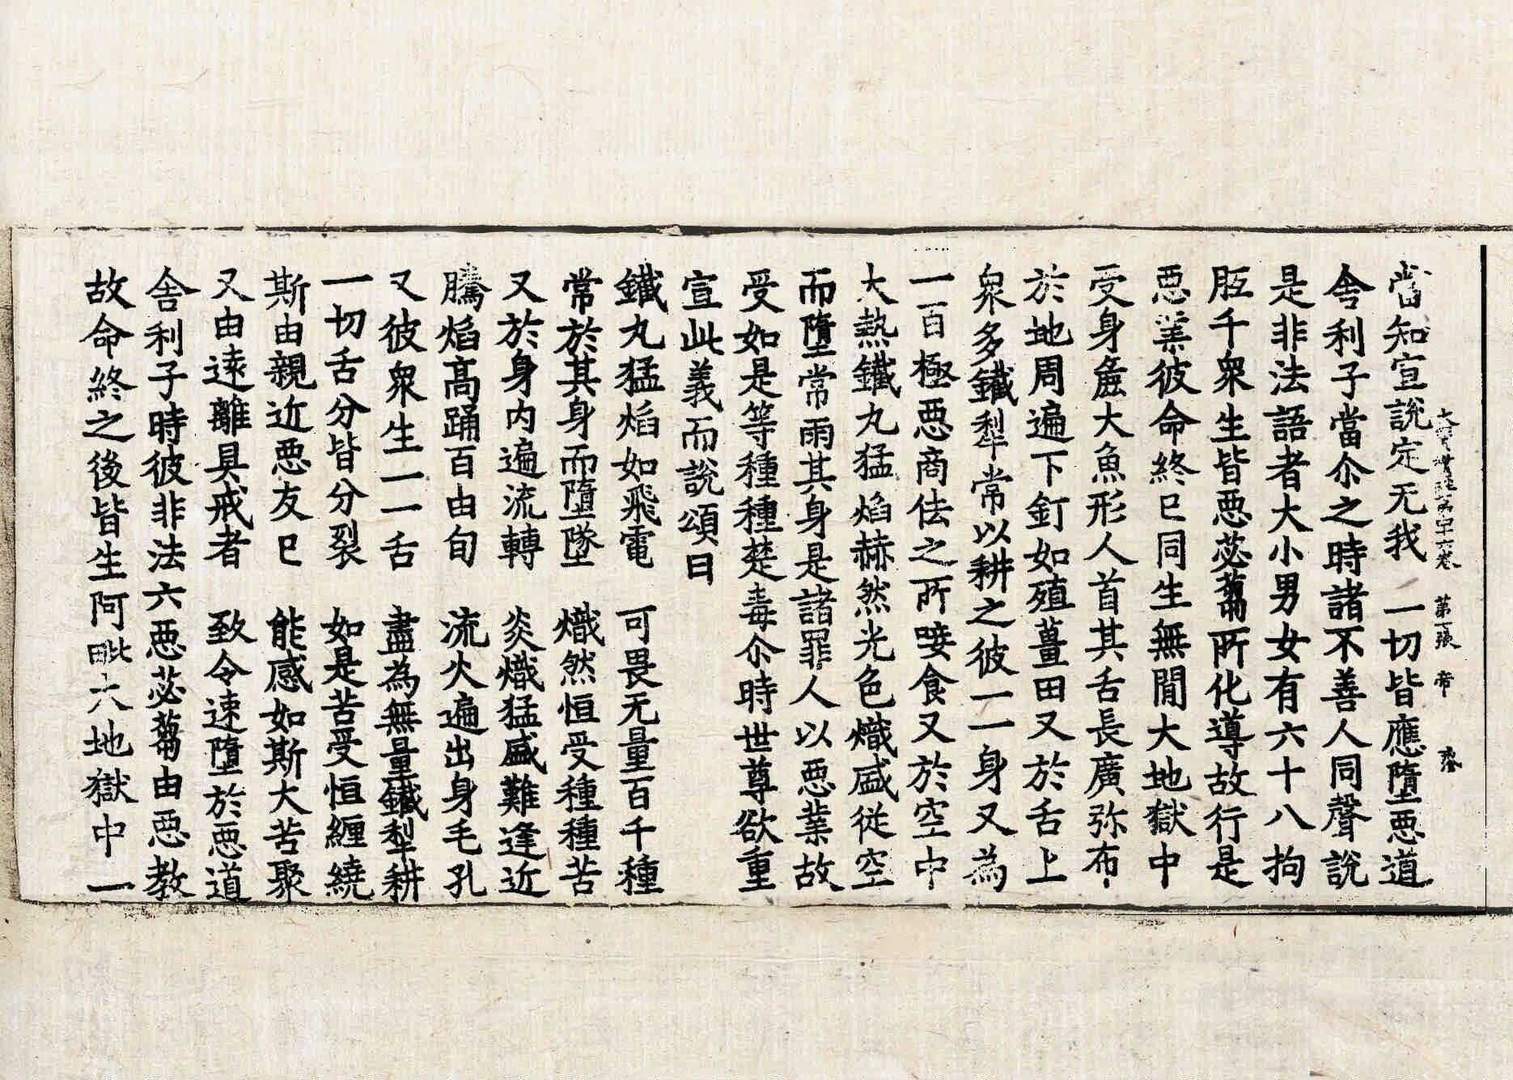 當知宣說定无我　一切皆應墮惡道
舍利子當尒之時諸不善人同聲說
是非法語者大小男女有六十八拘
胝千衆生皆惡苾蒭所化導故行是
惡業彼命終已同生無間大地獄中
受身麁大魚形人首其舌長廣弥布
於地周遍下釘如殖薑田又於舌上
衆多鐵犁常以耕之彼一一身又為
一百極惡商佉之所唼食又於空中
大熱鐵丸猛焰赫然光色熾盛從空
而墮常雨其身是諸罪人以惡業故
受如是等種種楚毒尒時世尊欲重
宣此義而說頌曰
鐵丸猛焰如飛電　可畏无量百千種
常於其身而墮墜　熾然恒受種種苦
又於身内遍流轉　炎熾猛盛難逢近
騰焰高踊百由旬　流火遍出身毛孔
又彼衆生一一舌　盡為無量鐵犁耕
一切舌分皆分裂　如是苦受恒纏繞
斯由親近惡友已　能感如斯大苦聚
又由遠離具戒者　致令速墮於惡道
舍利子時彼非法六惡苾蒭由惡教
故命終之後皆生阿毗大地獄中一